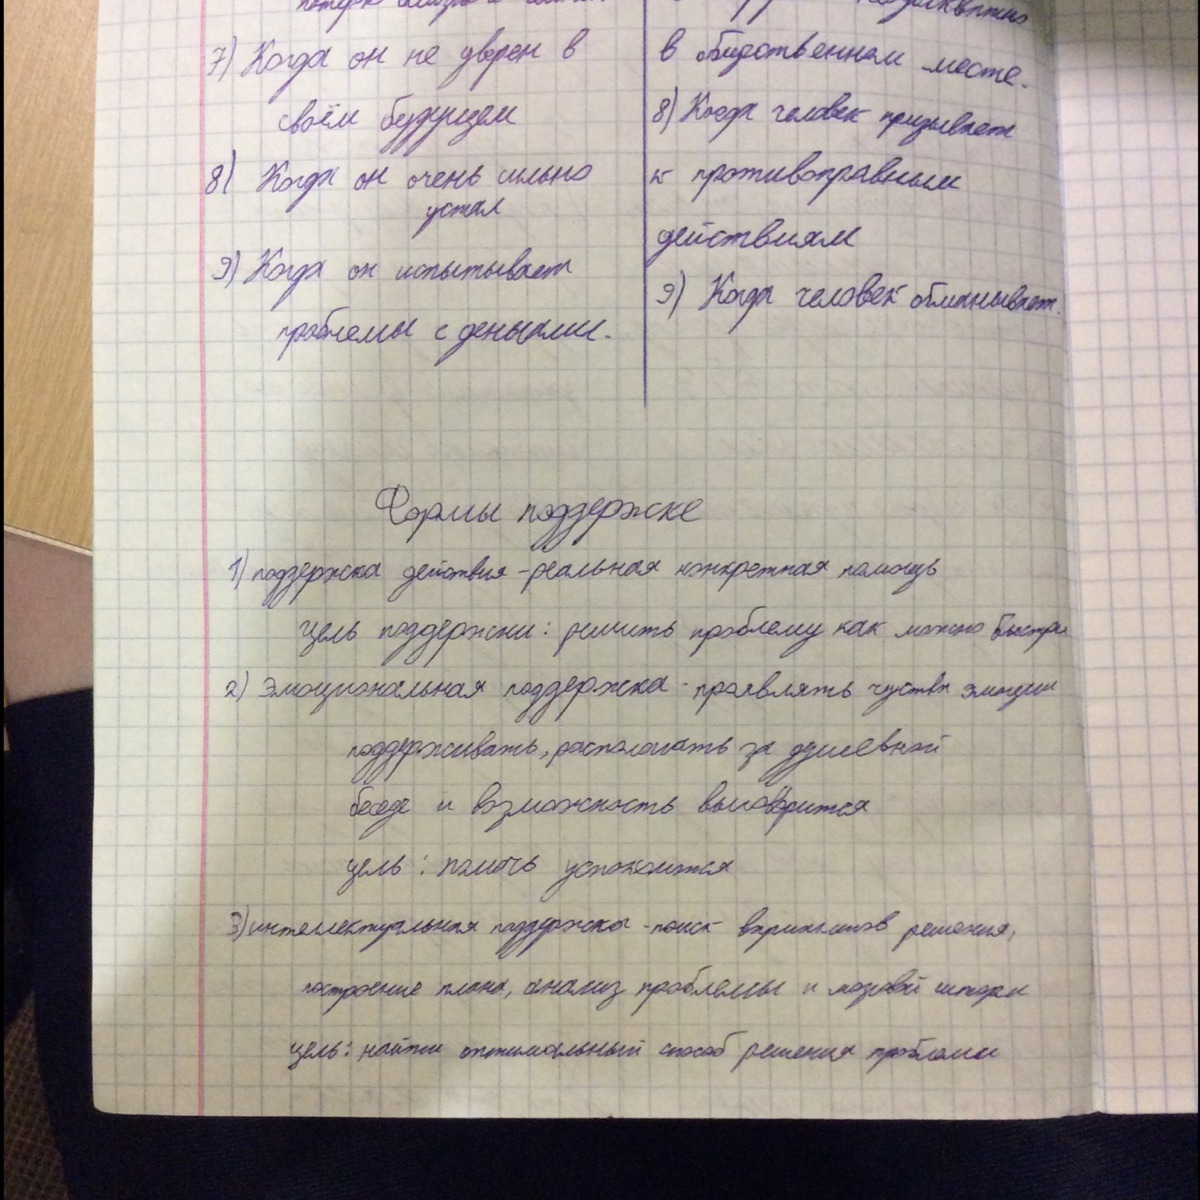 7) Когда он не уверен в
своём будущем
8) Когда он очень сильно
устал
9) Когда он испытывает
проблемы с деньгами.
в общественном месте.
8) Когда человек призывает
к противоправным
действиям
9) Когда человек обманывает.
Формы поддержке
1) поддержка действия - реальная конкретная помощь
Цель поддержки: решить проблему как можно быстрее
2) Эмоциональная поддержка - проявлять чуства эмоции
поддерживать, распологать за душевной
беседе и возможность выговорится
цель: помочь успокоится
3) интеллектуальная поддержка - поиск вариантов решения,
построение плана, анализ проблемы и мозговой шторм
цель: найти оптимальный способ решения проблемы